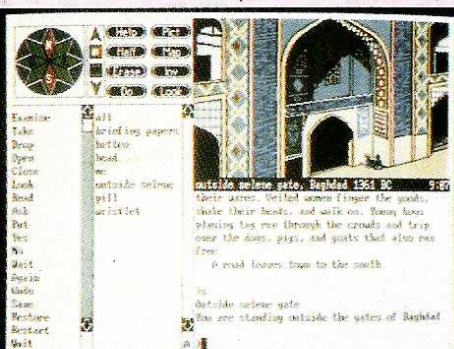 N
S
Help
Pct
Half
Map
Erase
Inv
Do
Look
Examine
Take
Drop
Open
Close
Look
Read
Ask
Put
Yes
No
Wait
Again
Undo
Save
Restore
Restart
Quit
all
briefing papers
button
head
me
outside selene
pill
wristlet
outside selene gate, Baghdad 1361 BC 9:07
their wares. Veiled women finger the goods,
shake their heads, and walk on. Young boys
playing tag run through the crowds and trip
over the dogs, pigs, and goats that also run
free.
A road leaves town to the south.
>s
Outside selene gate
You are standing outside the gates of Baghdad.